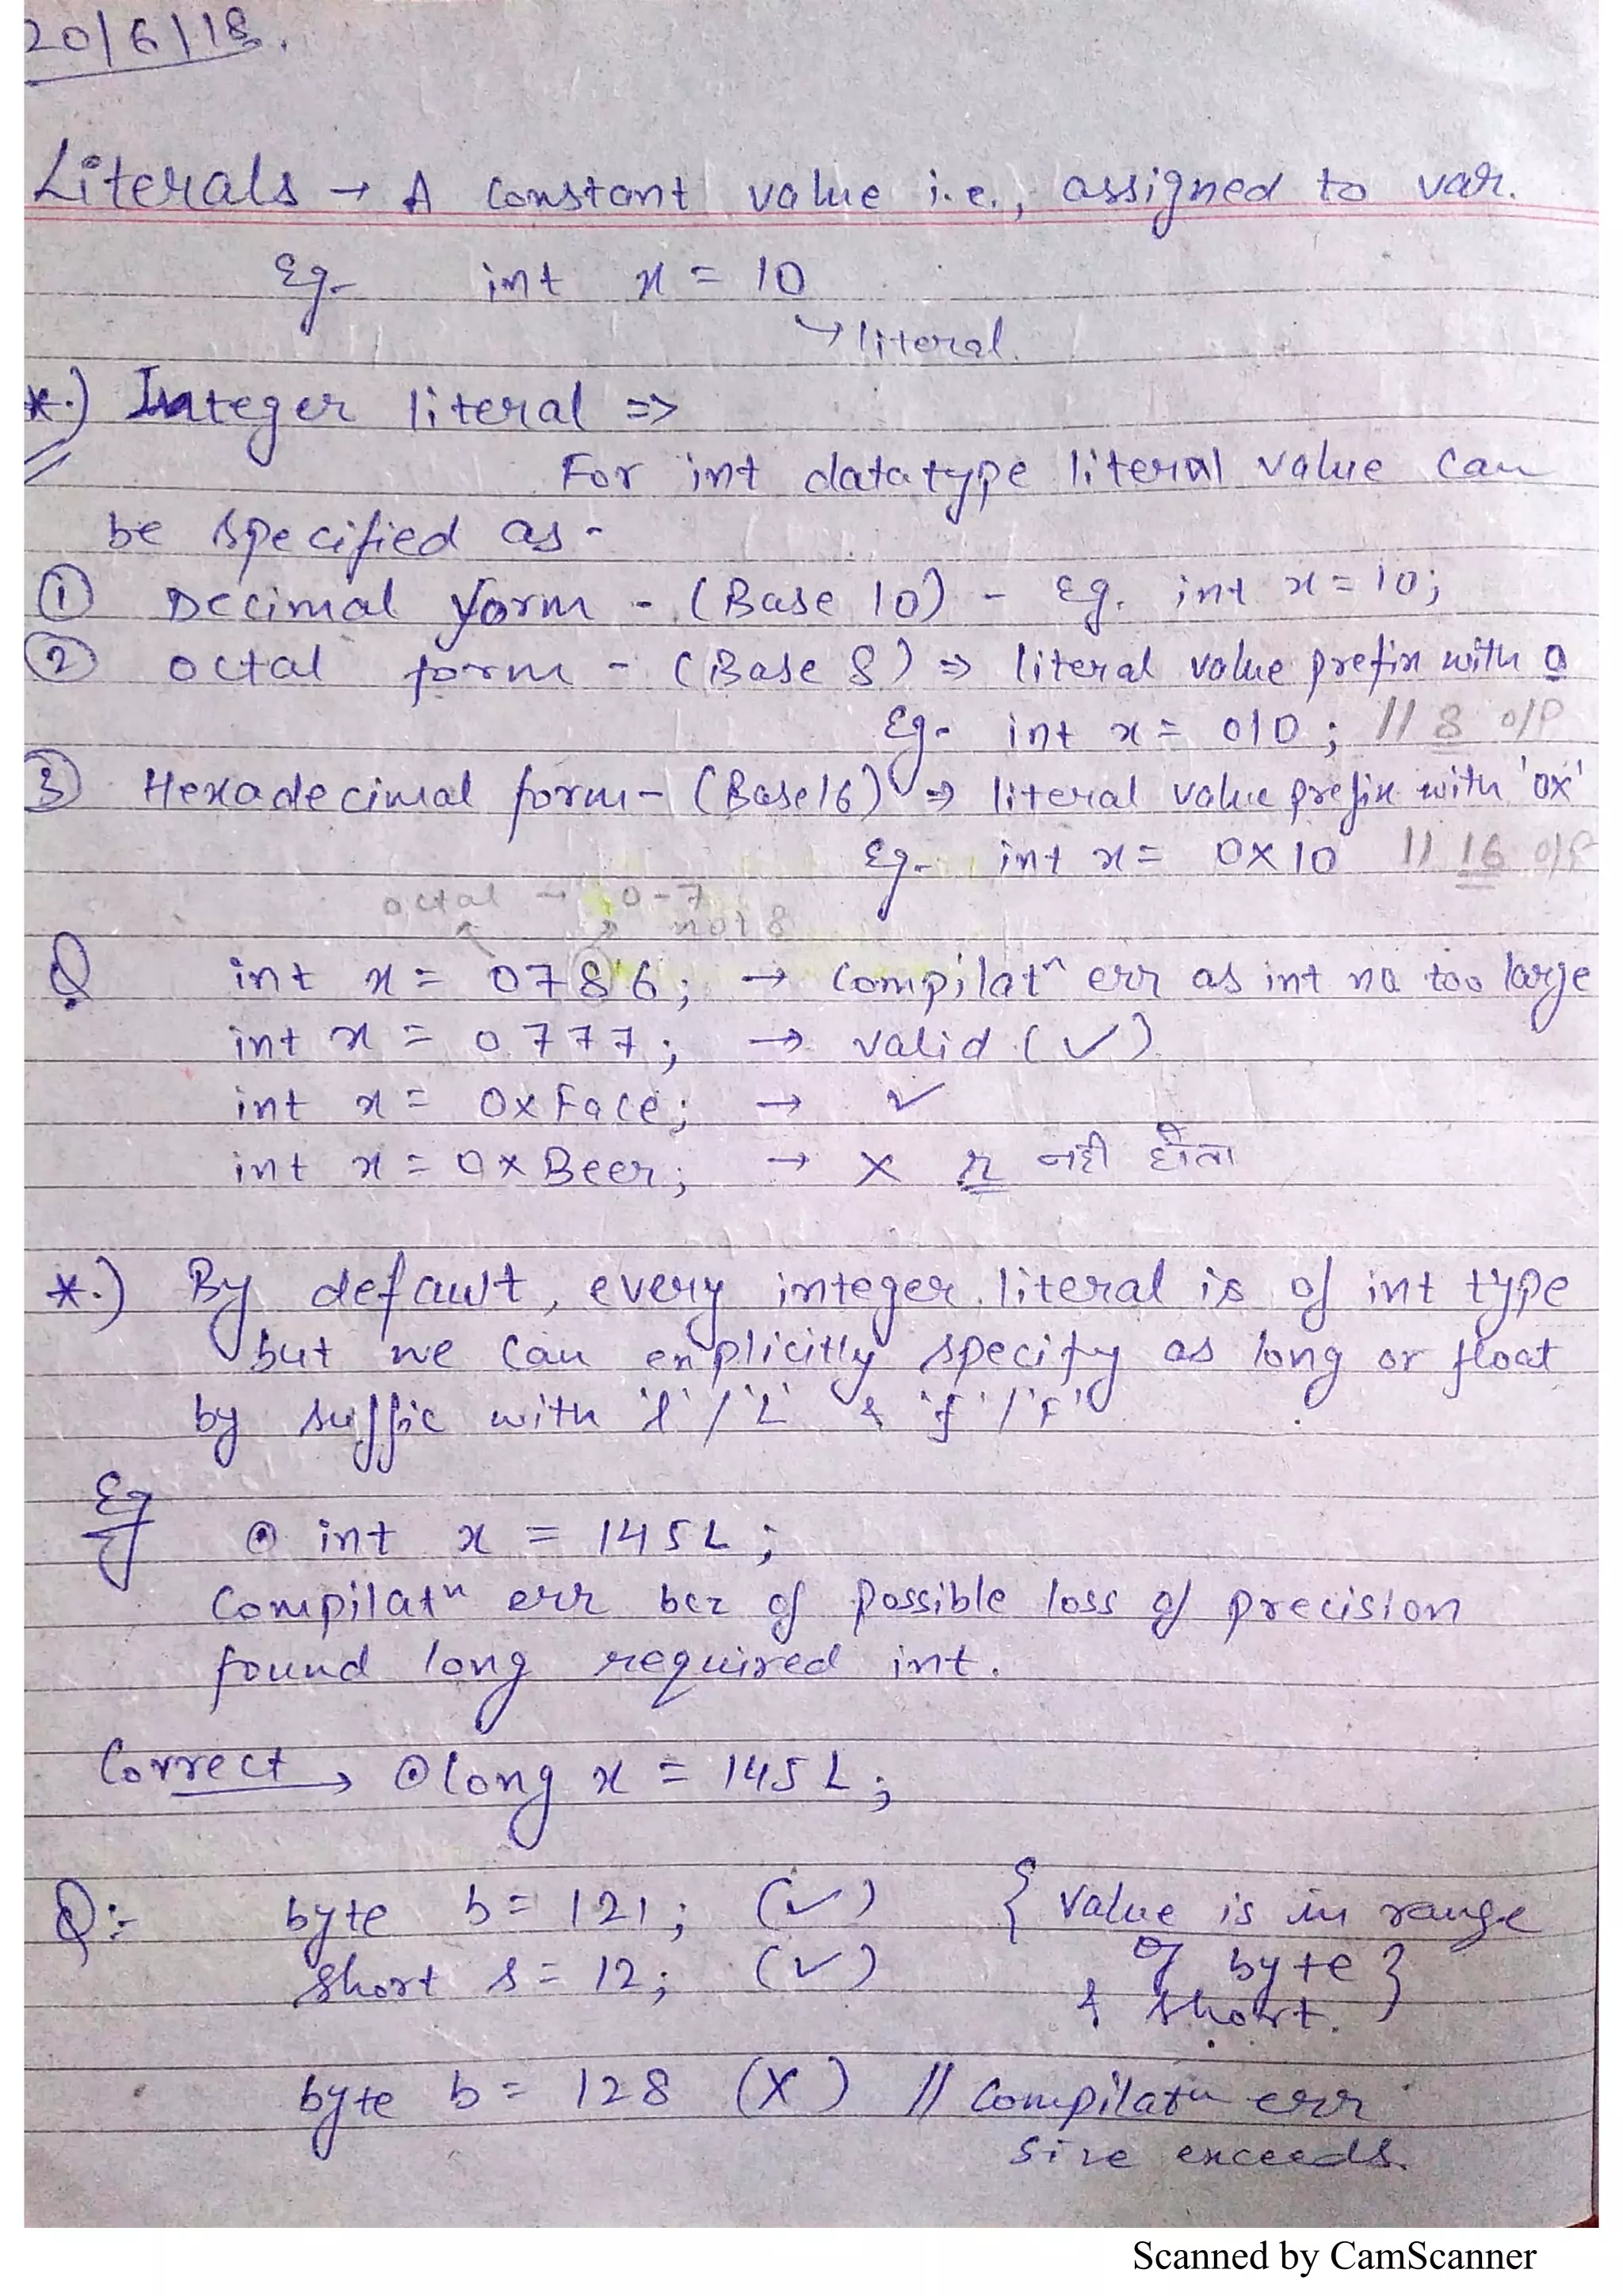 20/6/18.
Literals → A Constant value i.e., assigned to var.
Eg- int x = 10
↳ literal.
*.) Integer literal =>
For int datatype literal value can
be specified as -
① Decimal form - (Base 10) - Eg. int x = 10;
② octal form - (Base 8) ⇒ literal value prefix with 0
Eg- int x = 010; // 8 o/p
③ Hexadecimal form - (Base16) ⇒ literal value prefix with '0x'
Eg- int x = 0X10 // 16 o/p
octal → 0-7
not 8
Q int x = 0786; → Compilatn err as int no too large
int x = 0777; → valid (✓)
int x = 0xFace; → ✓
int x = 0xBeer; → X r नही होता
*.) By default, every integer literal is of int type
but we can explicitly specify as long or float
by suffic with 'l'/'L' & 'f'/'F'
Eg ⊙ int x = 145L;
Compilatn err bcz of possible loss of precision
found long required int.
Correct → ⊙ long x = 145L;
Q:- byte b = 121; (✓) { value is in range
short s = 12; (✓) of byte }
& short.
byte b = 128 (X) // Compilatn err
size exceeds.
Scanned by CamScanner